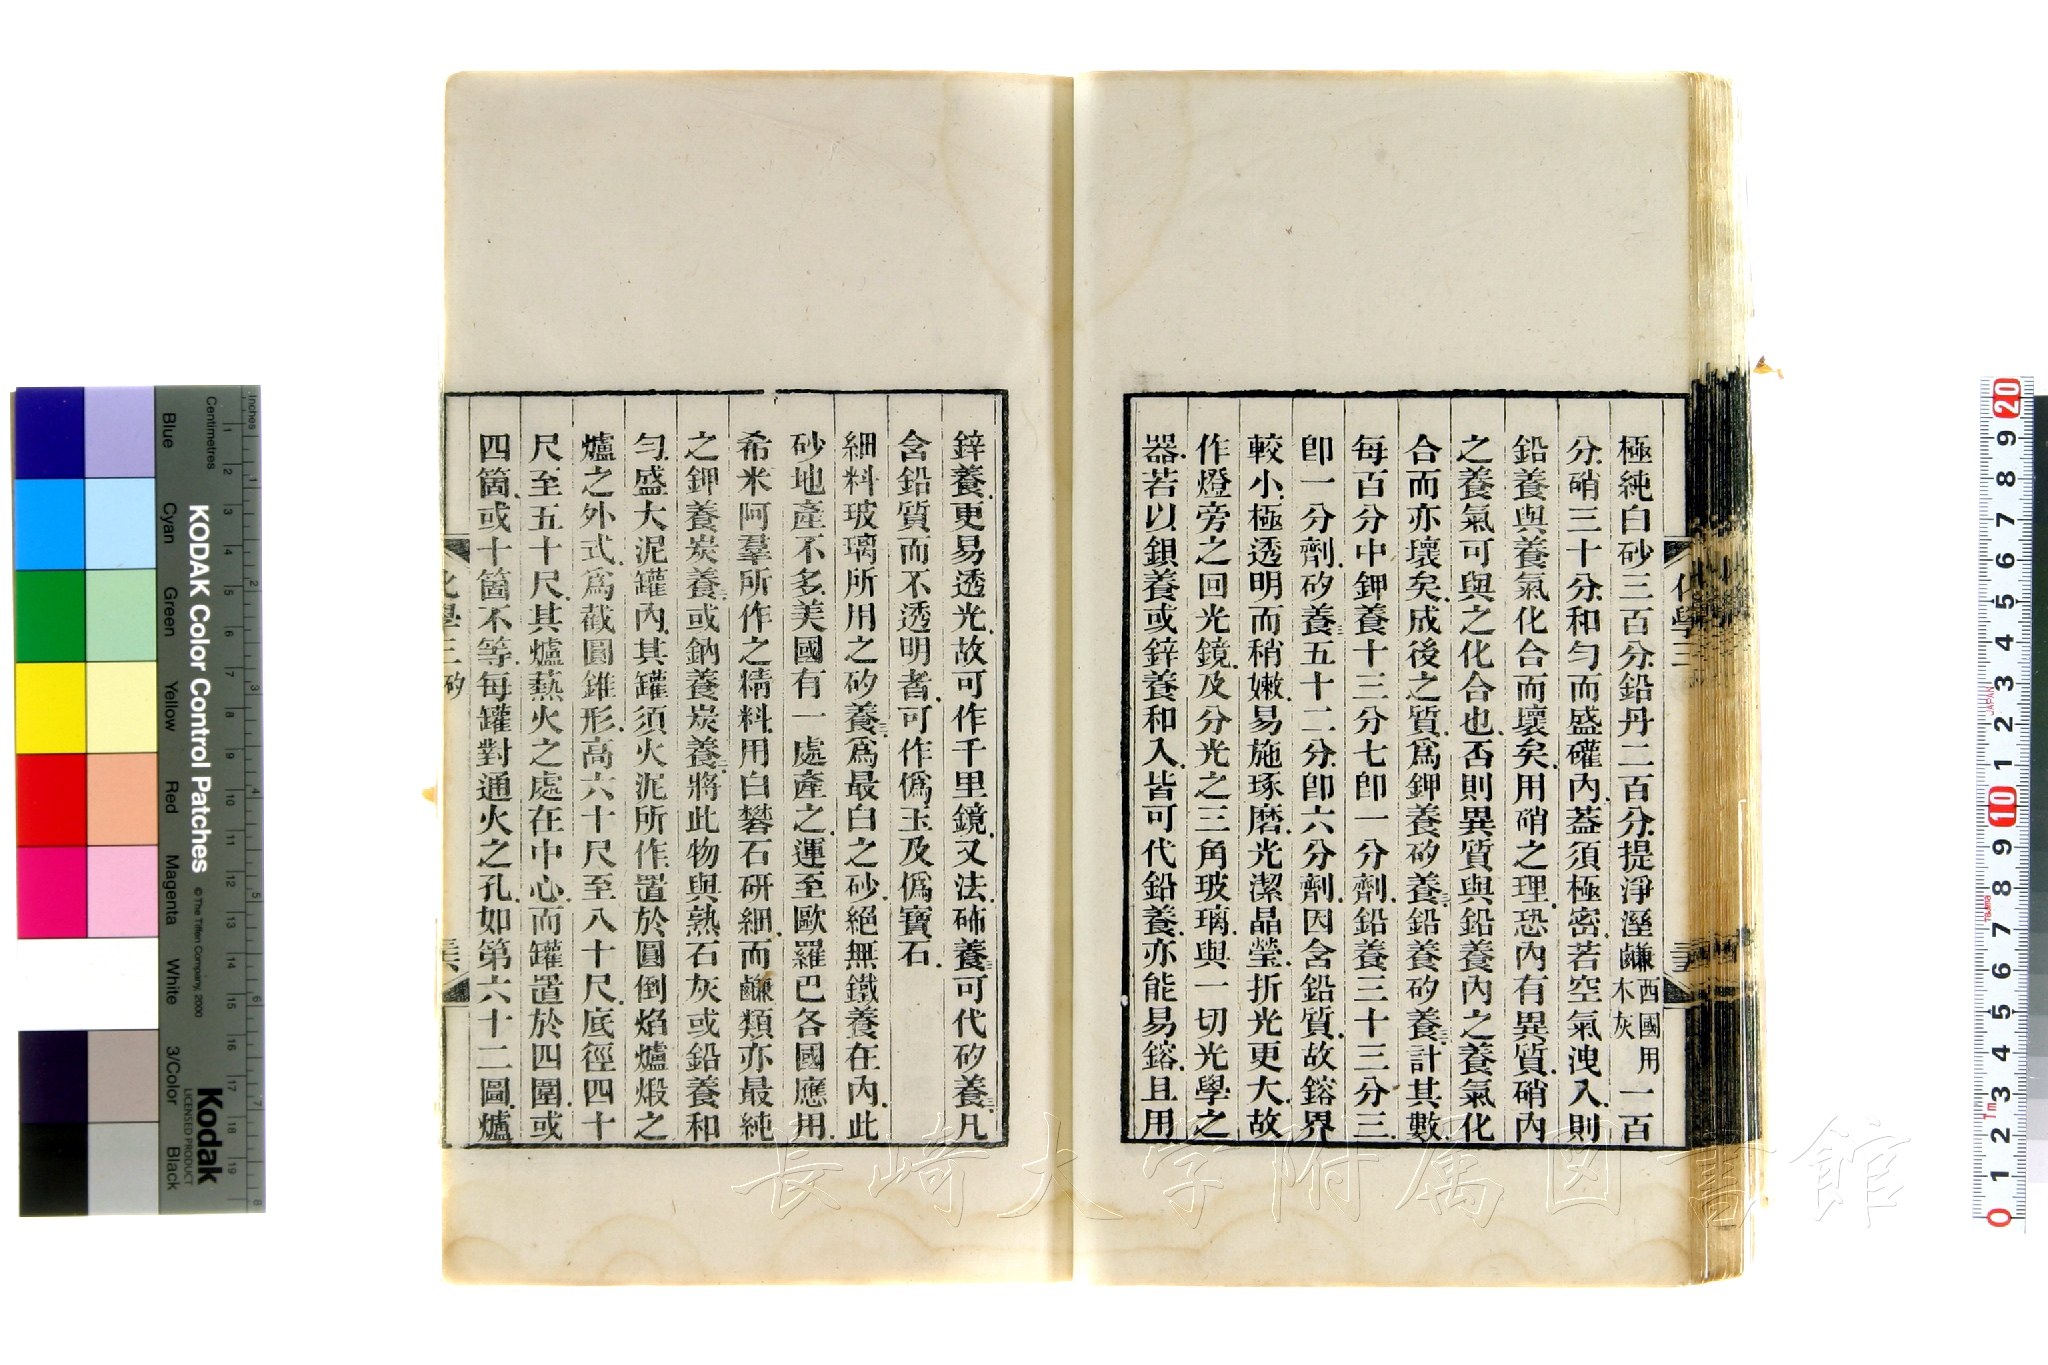 極純白砂三百分鉛丹二百分提淨溼鹻西國用木灰一百
分硝三十分和勻而盛礶內蓋須極密若空氣洩入則
鉛養與養氣化合而壞矣用硝之理恐內有異質硝內
之養氣可與之化合也否則異質與鉛養內之養氣化
合而亦壞矣成後之質爲鉀養矽養三鉛養矽養三計其數
每百分中鉀養十三分七卽一分劑鉛養三十三分三
卽一分劑矽養三五十二分卽六分劑因含鉛質故鎔界
較小極透明而稍嫩易施琢磨光潔晶瑩折光更大故
作燈旁之回光鏡及分光之三角玻璃與一切光學之
器若以鋇養或鋅養和入皆可代鉛養亦能易鎔且用
化學三
鋅養更易透光故可作千里鏡又法𥐟養三可代矽養三凡
含鉛質而不透明者可作僞玉及僞寶石
細料玻璃所用之矽養三爲最白之砂絕無鐵養在內此
砂地產不多美國有一處產之運至歐羅巴各國應用
希米阿羣所作之精料用白礬石研細而鹻類亦最純
之鉀養炭養二或鈉養炭養二將此物與熟石灰或鉛養和
勻盛大泥罐內其罐須火泥所作置於圓倒焰爐煅之
爐之外式爲截圓錐形高六十尺至八十尺底徑四十
尺至五十尺其爐爇火之處在中心而罐置於四圍或
四箇或十箇不等每罐對通火之孔如第六十二圖爐
化學三 矽
KODAK Color Control Patches
© The Tiffen Company, 2000
Kodak
LICENSED PRODUCT
Inches
Centimetres
Blue
Cyan
Green
Yellow
Red
Magenta
White
3/Color
Black
長崎大学附属図書館
JAPAN